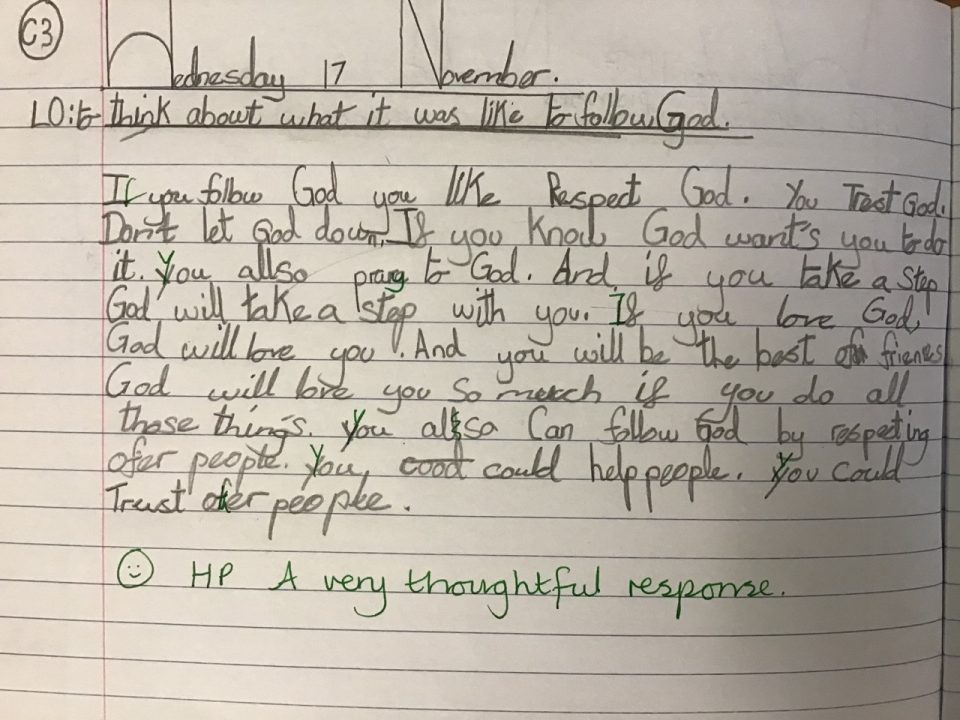 C3
Wednesday 17 November.
LO: to think about what it was like to follow God.
If you follow God you like Respect God. You Trest God.
Don't let God down, If you Know God want's you to do
it. You allso prang to God. And if you take a step
God will take a step with you. If you love God,
God will love you. And you will be the best of friends
God will love you so mutch if you do all
those thing's. You allso Can follow God by respecting
ofer people. You, could help people. You could
Trust other people.
HP A very thoughtful response.